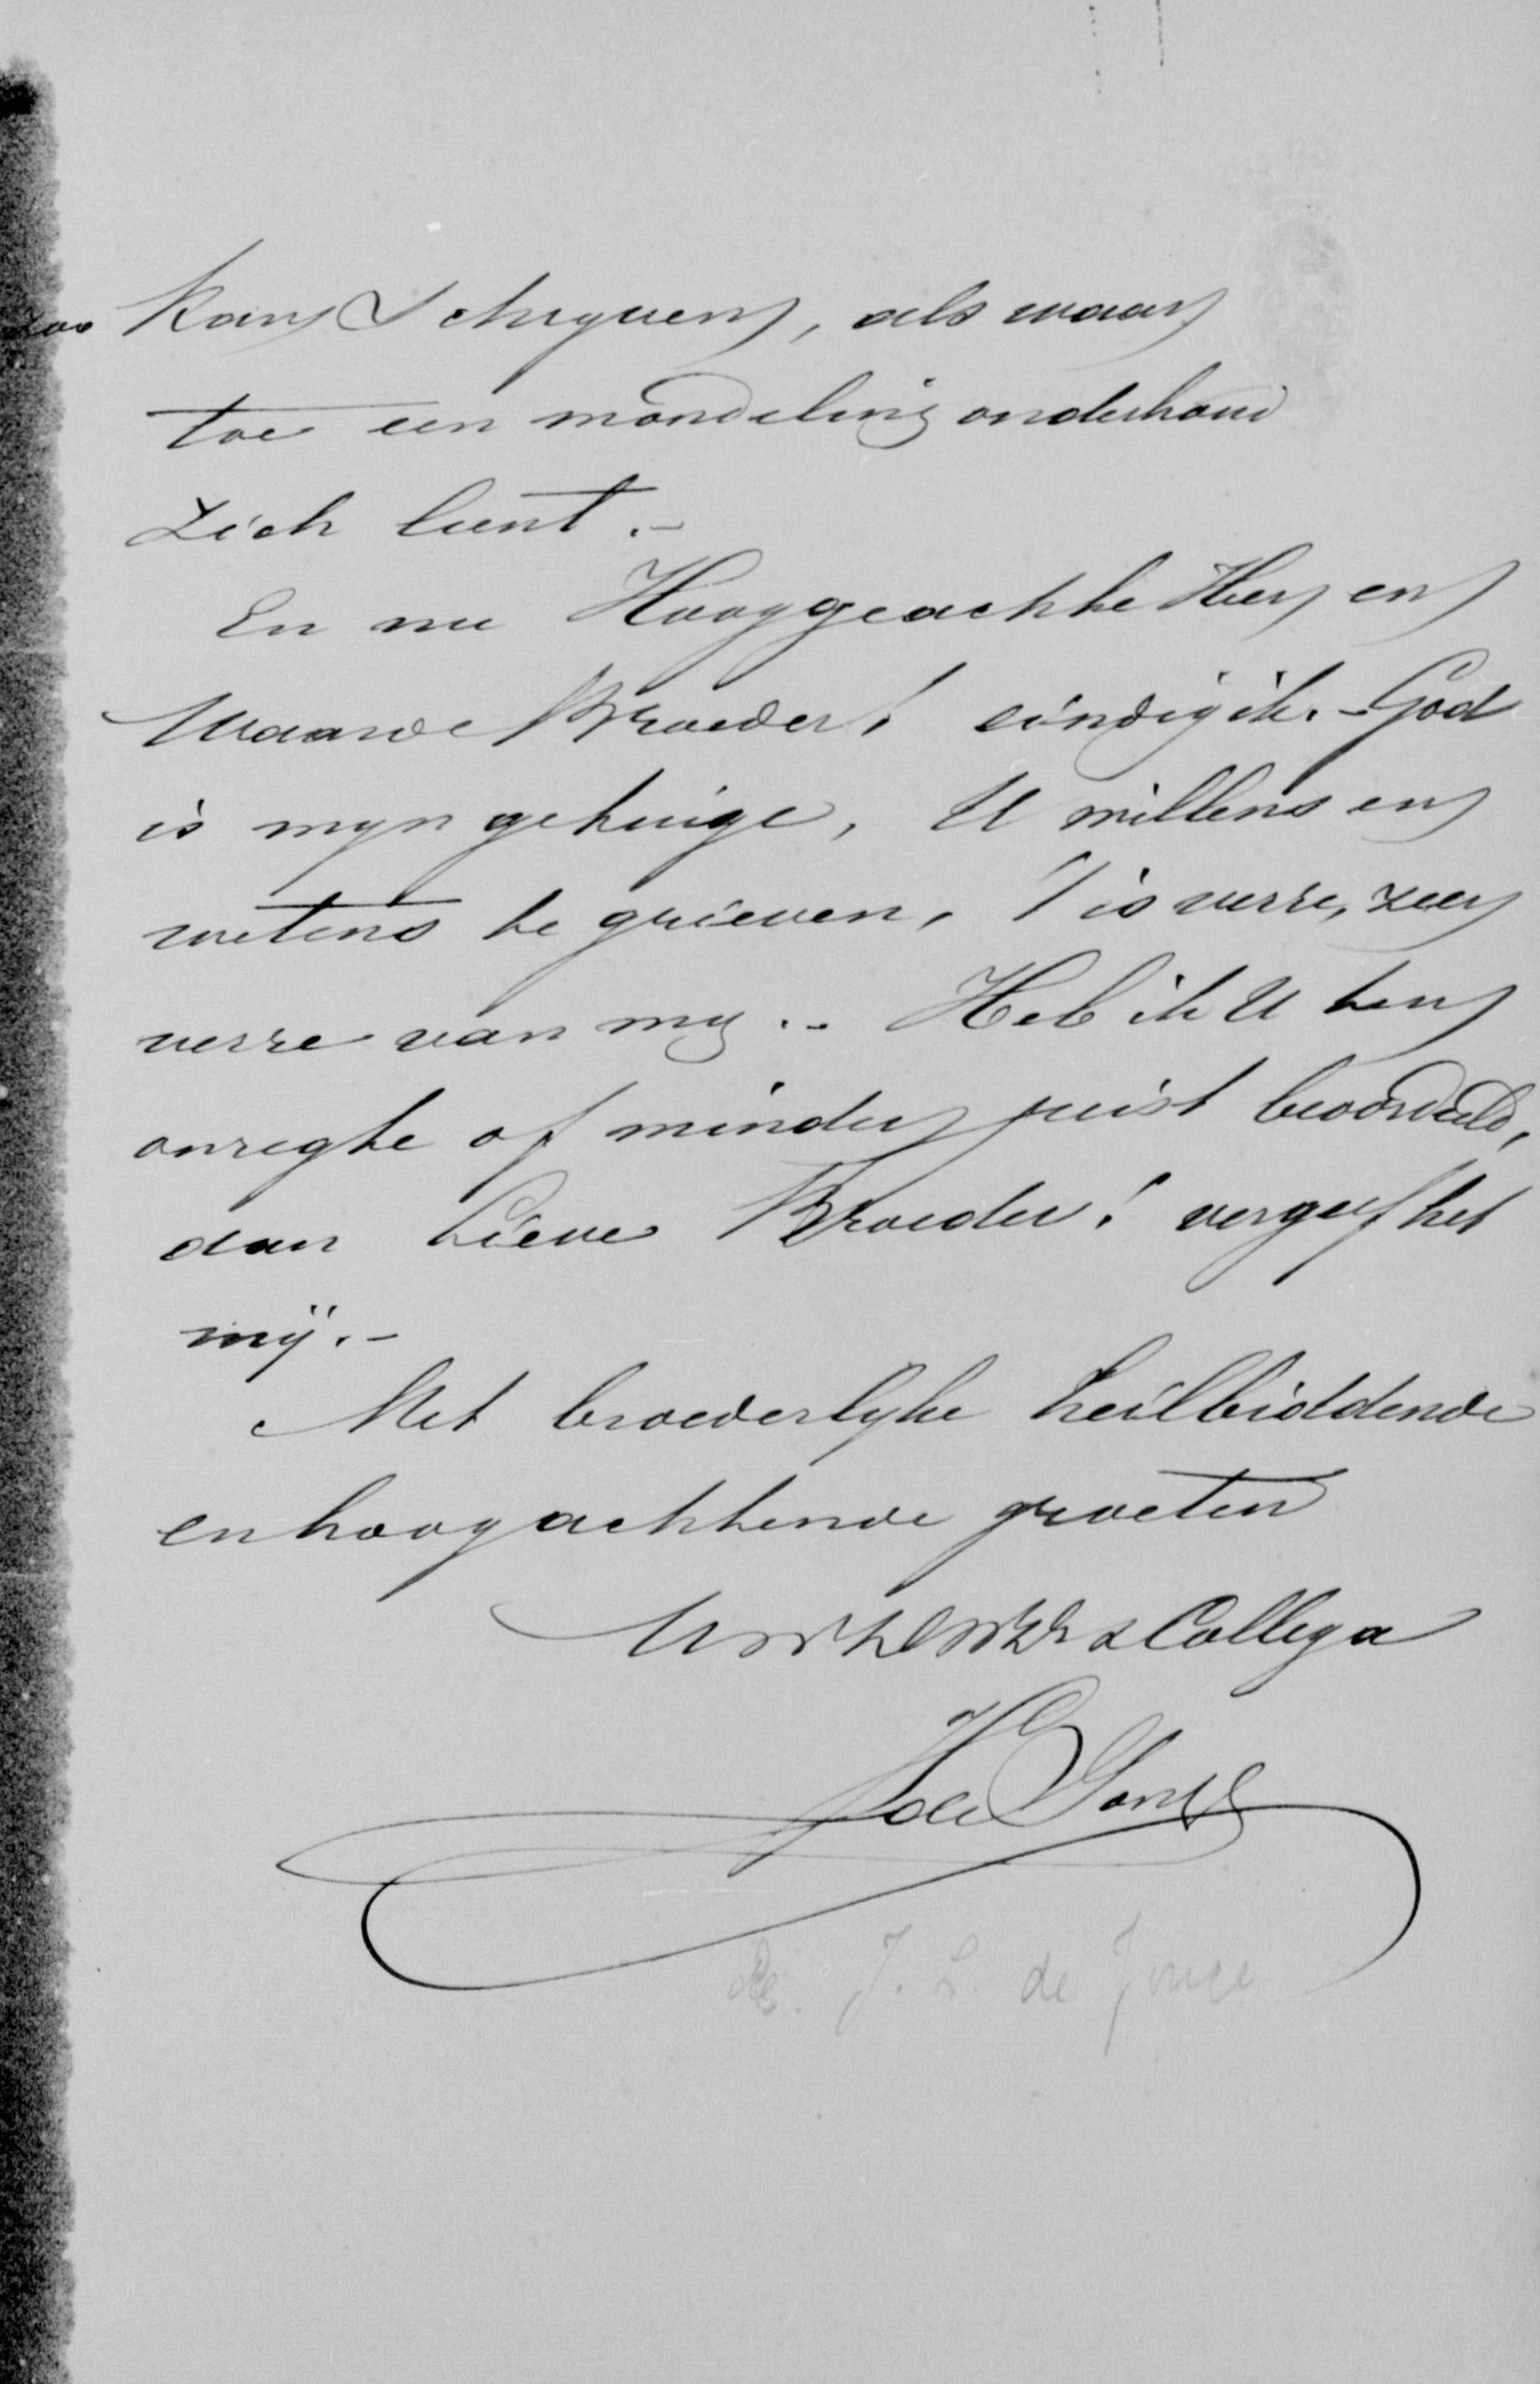 zoo kan Schryven, als waar
toe een mondeling onderhoud
zich leent.-
En nu Hooggeachte Heer en
Waarde Broeder! eindig ik. - God
is myn getuige, U willens en
wetens te grieven, 't is verre, zeer
verre van my. - Heb ik U ten
onregte of minder juist beoordeeld,
dan Lieve Broeder! vergeef het
mij.-
Met broederlyke heilbiddende
en hoogachtende groeten
Collega
de Jonge
J. L. de Jonge